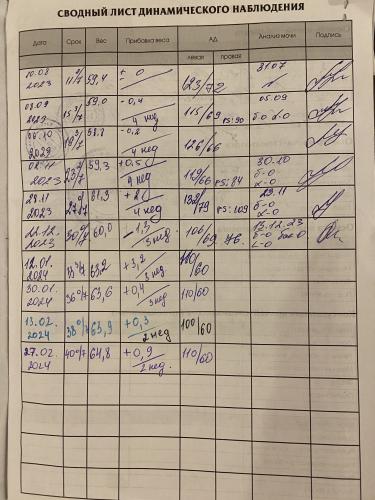 СВОДНЫЙ ЛИСТ ДИНАМИЧЕСКОГО НАБЛЮДЕНИЯ
Дата Срок Вес Прибавка веса АД Анализ мочи Подпись
левая правая
10.08 2023 59,4 123/72 31.07
08.09 2023 15 59,0 - 0,4 4 нед 115/69 PS-90 05.09 б-0
06.10 2023 19 58.8 - 0,2 4 нед 126/66
02.11 2023 59,3 +0,5 4 нед 119/66 PS:84 30.10 б-0 L-0
29.11 2023 61,3 4 нед PS:109 б-0 L-0
22.12. 2023 30 60,0 - 1,3 3 нед 106/69 76. 13.12.23 б-0 L-0
12.01. 2024 33 63,2 +3,2 3 нед 110/60
30.01. 2024 36 63,6 +0,4 3 нед 110/60
13.02. 2024 38 63,9 +0,3 2 нед 100/60
27.02. 2024 40 64,8 +0,9 2 нед. 110/60